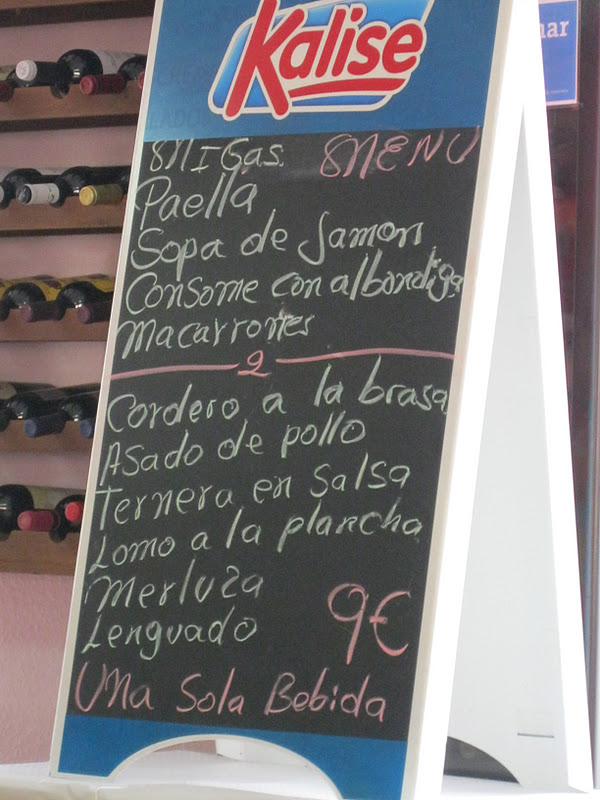 Kalise
Migas. MENU
Paella
Sopa de Jamon
Consome con albondiga
Macarrones
2
Cordero a la brasa
Asado de pollo
Ternera en Salsa
Lomo a la plancha
Merluza
Lenguado
9€
Una Sola Bebida